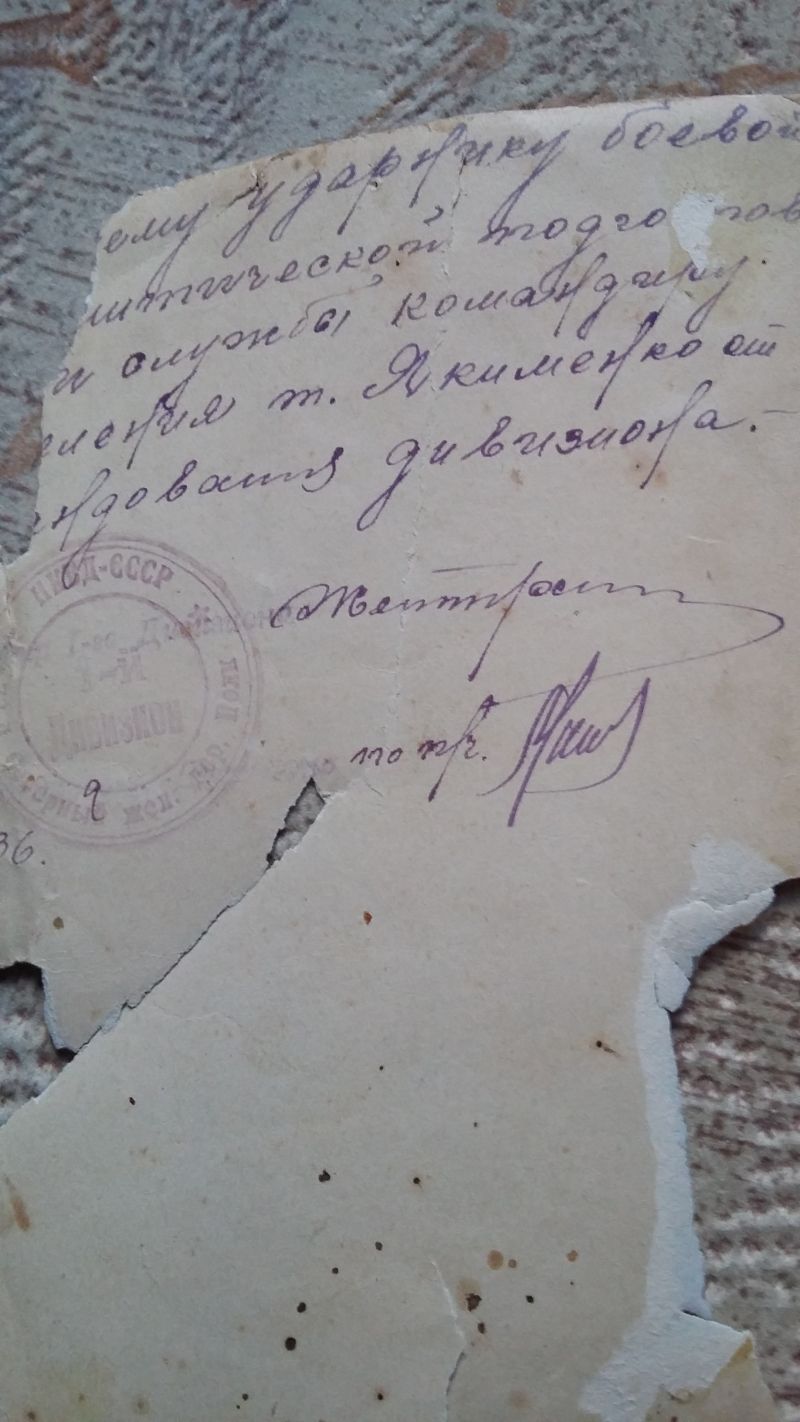 ему ударнику боевой
итической подготов
и службы командиру
еления т. Якименко от
ндования дивизиона.-
НКВД-СССР
1-й
Дивизион
жел. дор. Пол
36.